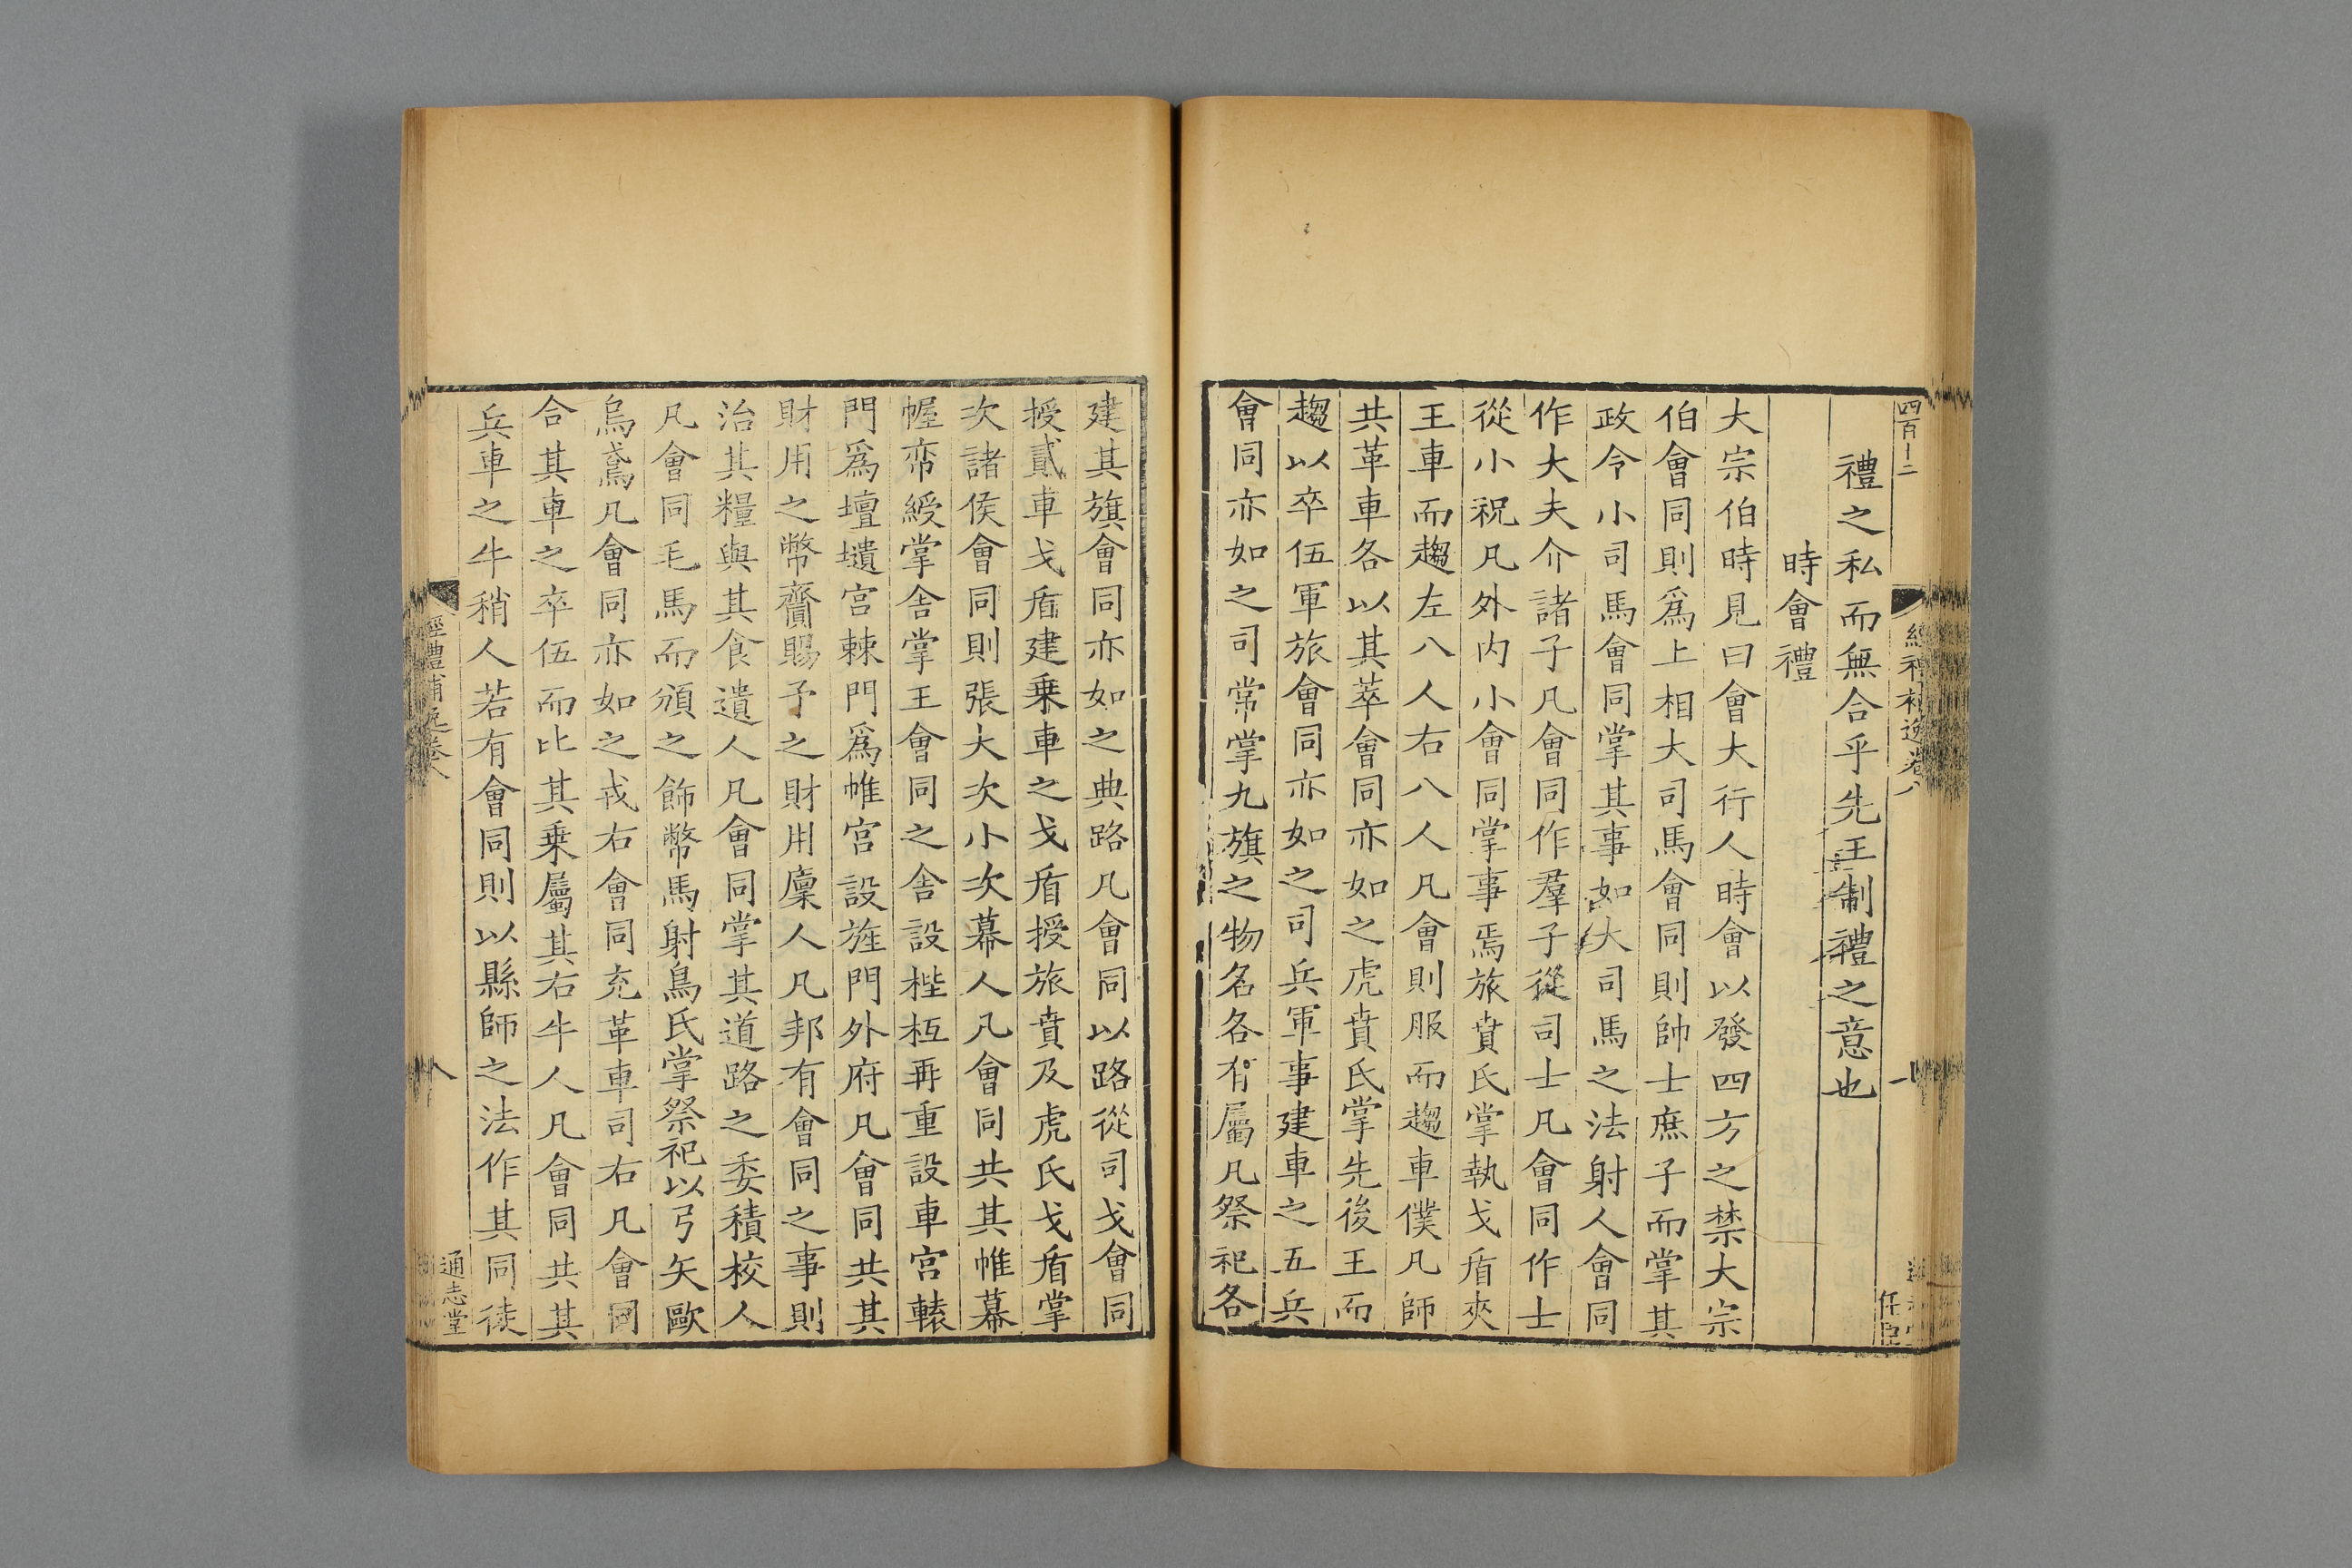 四百十二
經禮補逸卷八
任臣
禮之私而無合乎先王制禮之意也
時會禮
大宗伯時見曰會大行人時會以發四方之禁大宗
伯會同則爲上相大司馬會同則帥士庶子而掌其
政令小司馬會同掌其事如大司馬之法射人會同
作大夫介諸子凡會同作羣子從司士凡會同作士
從小祝凡外内小會同掌事焉旅賁氏掌執戈盾夾
王車而趨左八人右八人凡會則服而趨車僕凡師
共革車各以其萃會同亦如之虎賁氏掌先後王而
趨以卒伍軍旅會同亦如之司兵軍事建車之五兵
會同亦如之司常掌九旗之物名各有屬凡祭祀各
建其旗會同亦如之典路凡會同以路從司戈會同
授貳車戈盾建乗車之戈盾授旅賁及虎氏戈盾掌
次諸侯會同則張大次小次幕人凡會同共其帷幕
幄帟綬掌舍掌王會同之舍設梐枑再重設車宮轅
門爲壇壝宮棘門爲帷宮設旌門外府凡會同共其
財用之幣齎賜予之財用廩人凡邦有會同之事則
治其糧與其食遺人凡會同掌其道路之委積校人
凡會同毛馬而頒之飾幣馬射鳥氏掌祭祀以弓矢歐
烏鳶凡會同亦如之戎右會同充革車司右凡會同
合其車之卒伍而比其乗屬其右牛人凡會同共其
兵車之牛稍人若有會同則以縣師之法作其同徒
經禮補逸卷八
八
通志堂